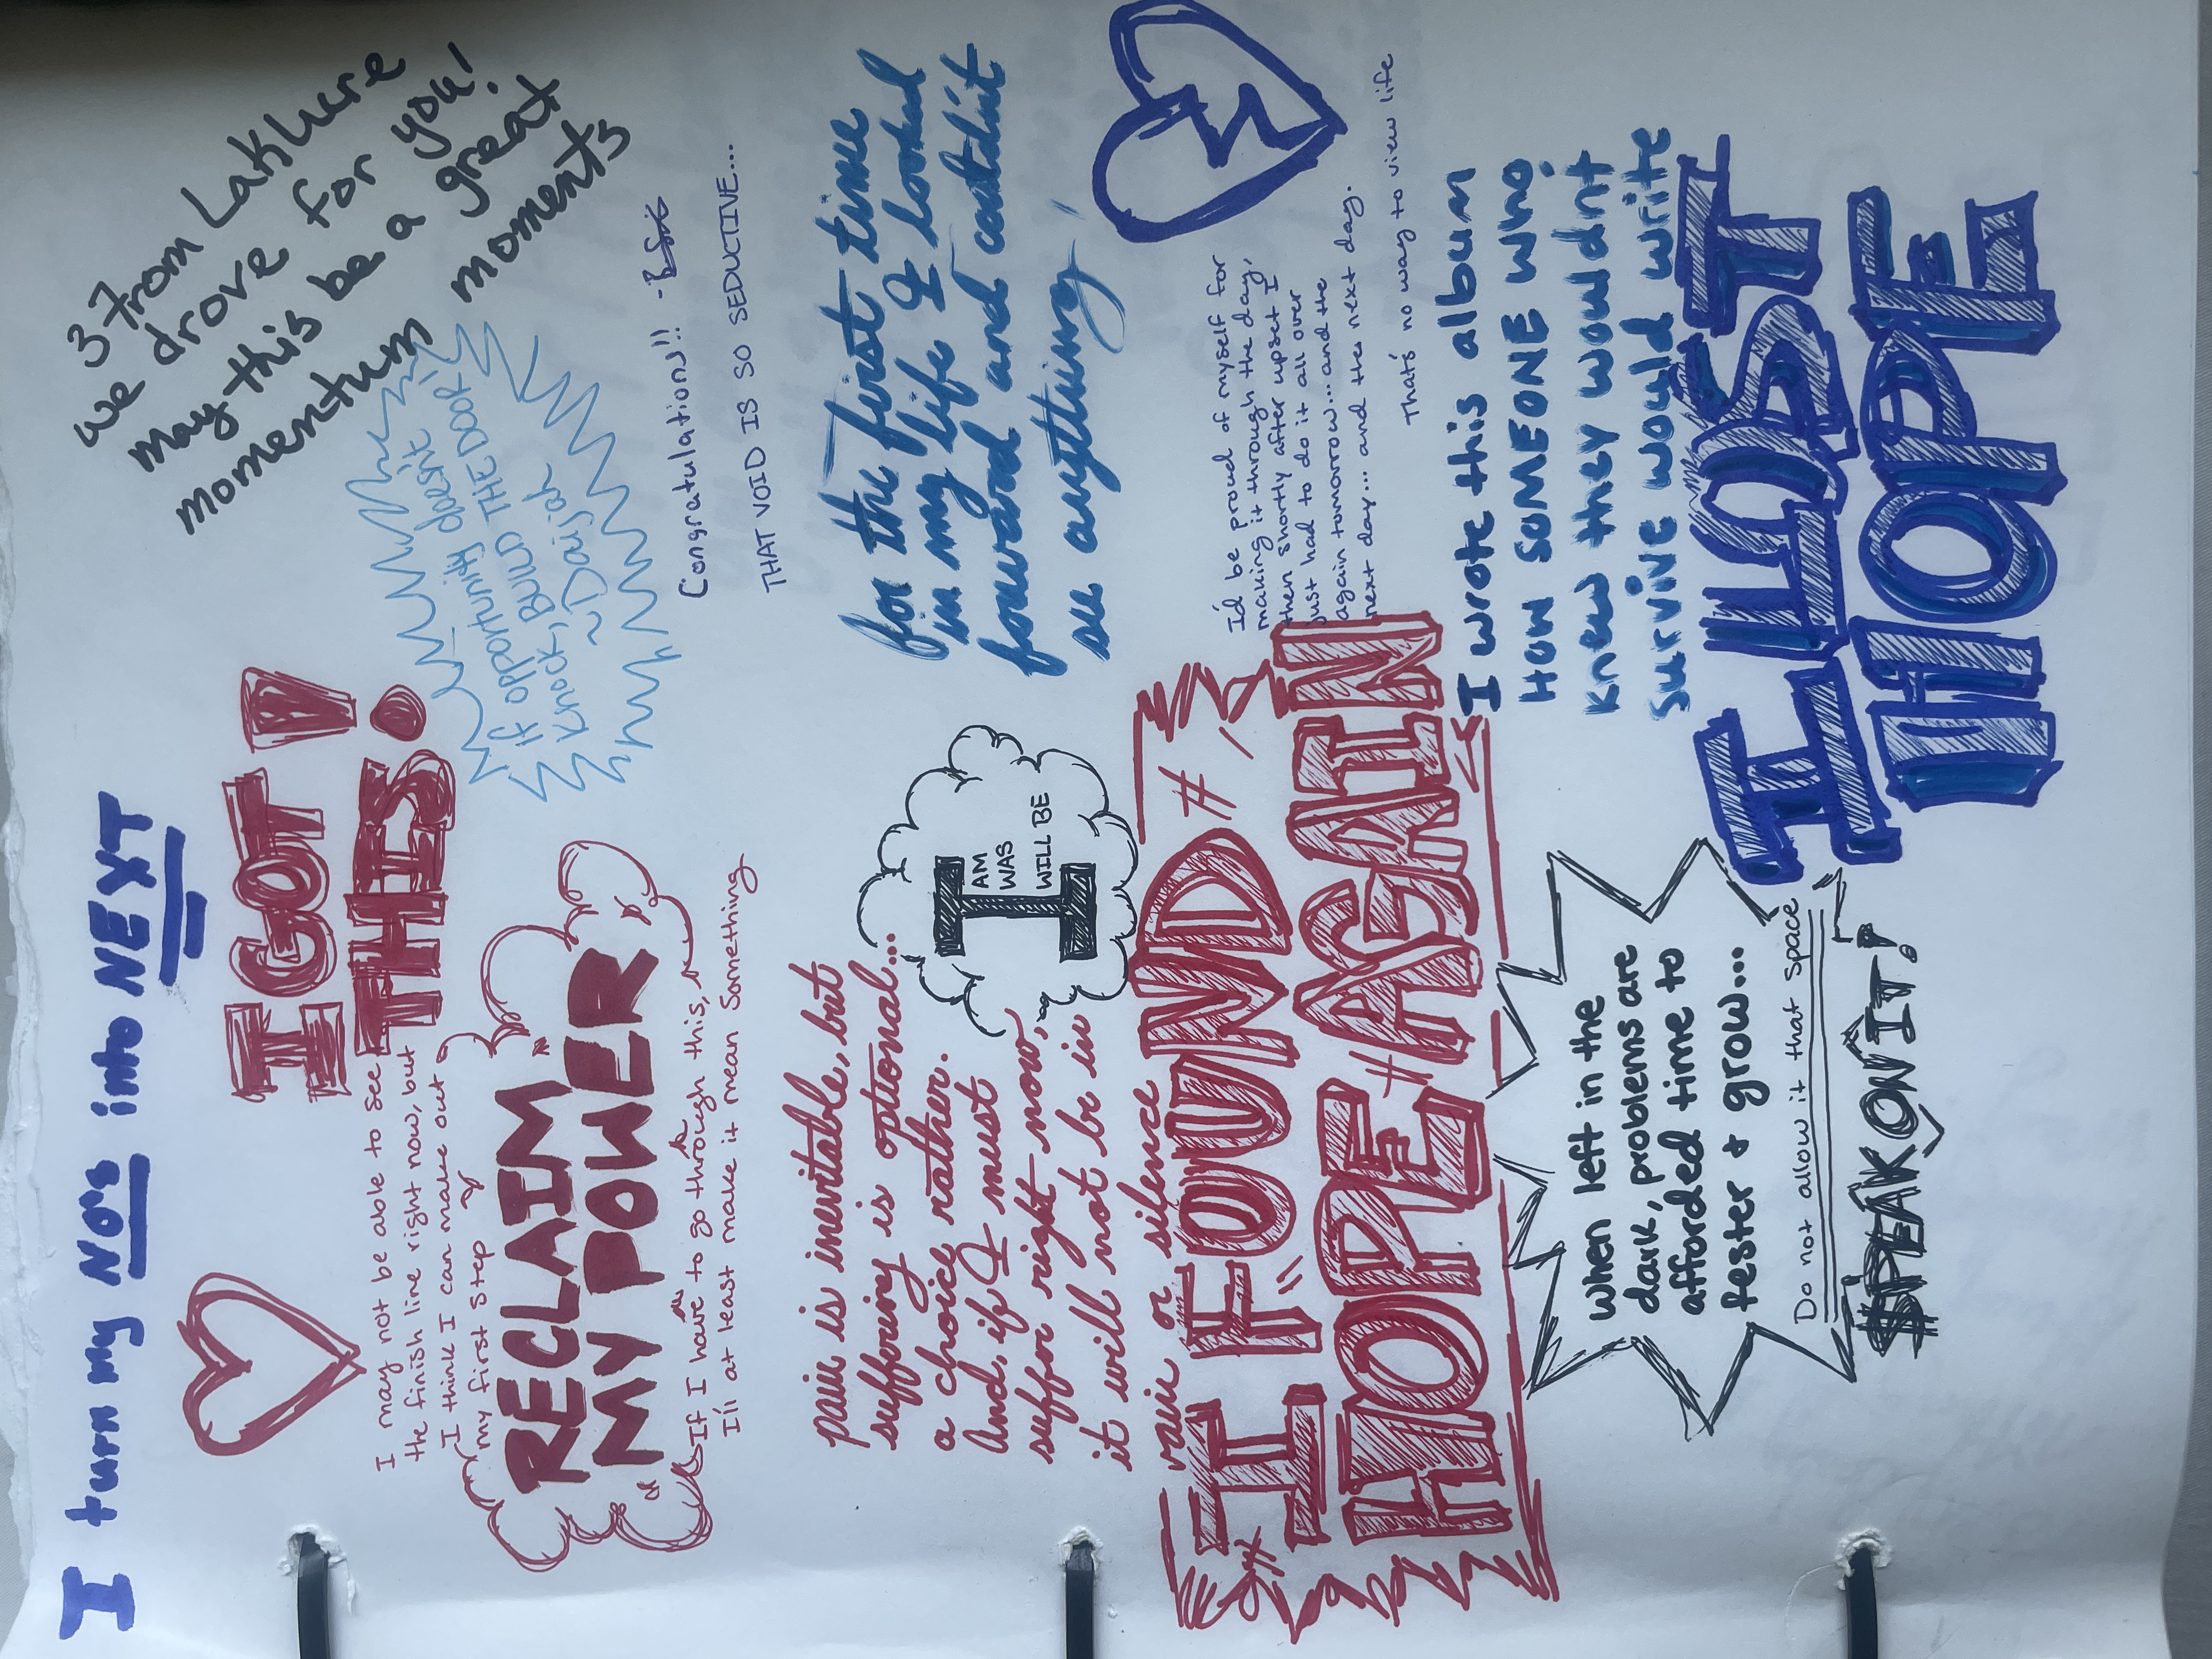 I turn my NO's into NEXT
3 from Lakhure
we drove for you!
may this be a great
momentum moments
I GOT !
THIS
I may not be able to see
the finish line right now, but
I think I can make out
my first step
If opportunity doesn't
Knock, BUILD THE DOOR!
~Daijah
RECLAIM
MY POWER
If I have to go through this,
I'll at least make it mean Something
Congratulations!!
THAT VOID IS SO SEDUCTIVE...
pain is inevitable, but
suffering is optional...
a choice rather.
And, if I must
suffer right now,
it will not be in
vain or silence
I
AM
WAS
WILL BE
for the first time
in my life I looked
forward and couldn't
see anything
I FOUND #
HOPE # AGAIN
I'd be proud of myself for
making it through the day,
then shortly after upset I
just had to do it all over
again tomorrow... and the
next day... and the next day.
That's no way to view life
I wrote this album
How SOMEONE who
knew they wouldnt
survive would write
I LOST
HOPE
When left in the
dark, problems are
afforded time to
fester + grow...
Do not allow it that space
SPEAK ON IT!